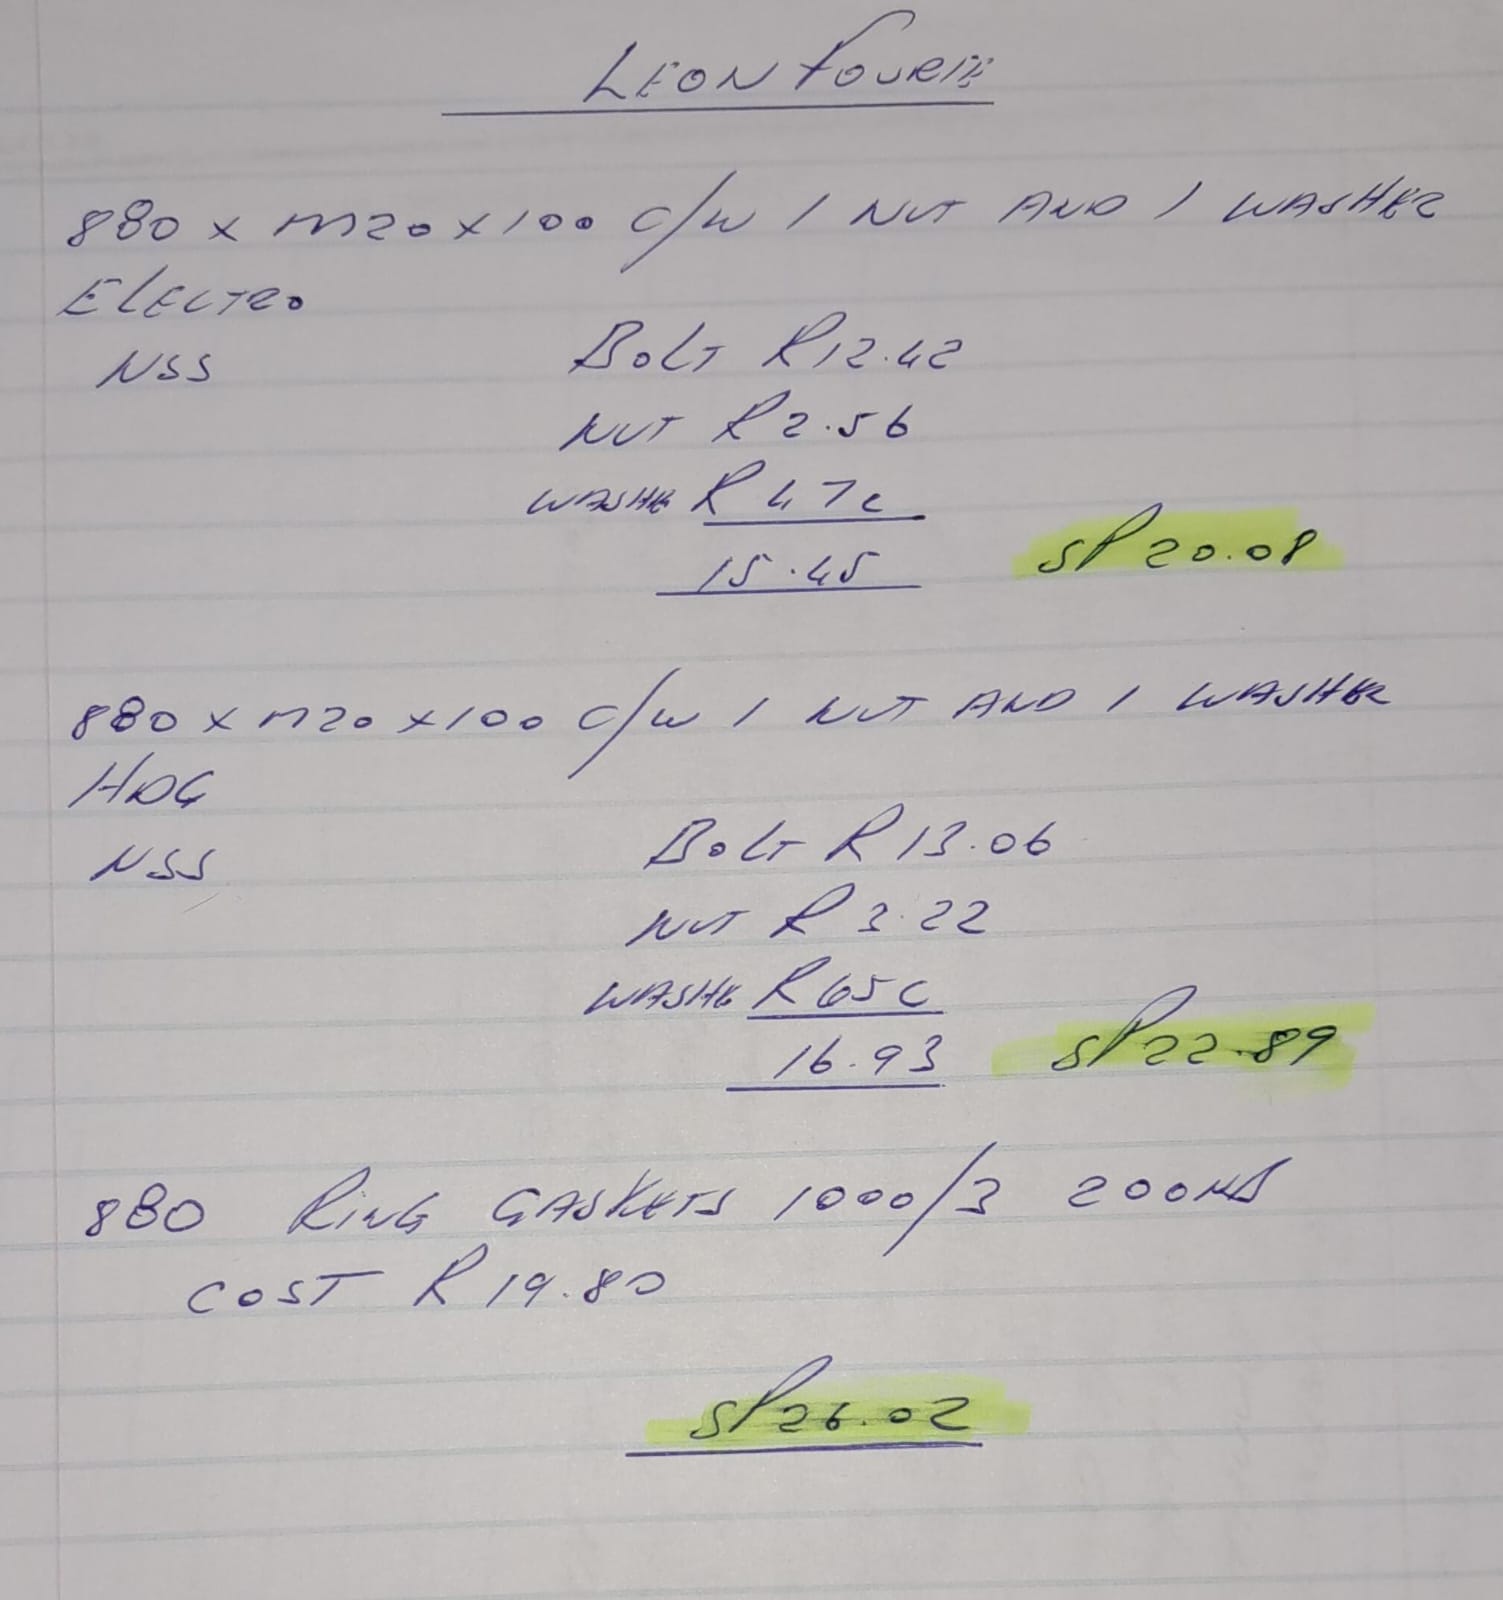 LEON FOURIE
880 x M20 x 100 C/W 1 NUT AND 1 WASHER
ELECTRO
NSS
BOLT R12.42
NUT R2.56
WASHE R 47c
15.45 SP 20.08
880 x M20 x 100 C/W 1 NUT AND 1 WASHER
HDG
NSS
BOLT R13.06
NUT R3.22
WASHE R65c
16.93 SP 22.89
880 RING GASKETS 1000/3 200NB
COST R19.80
SP26.02